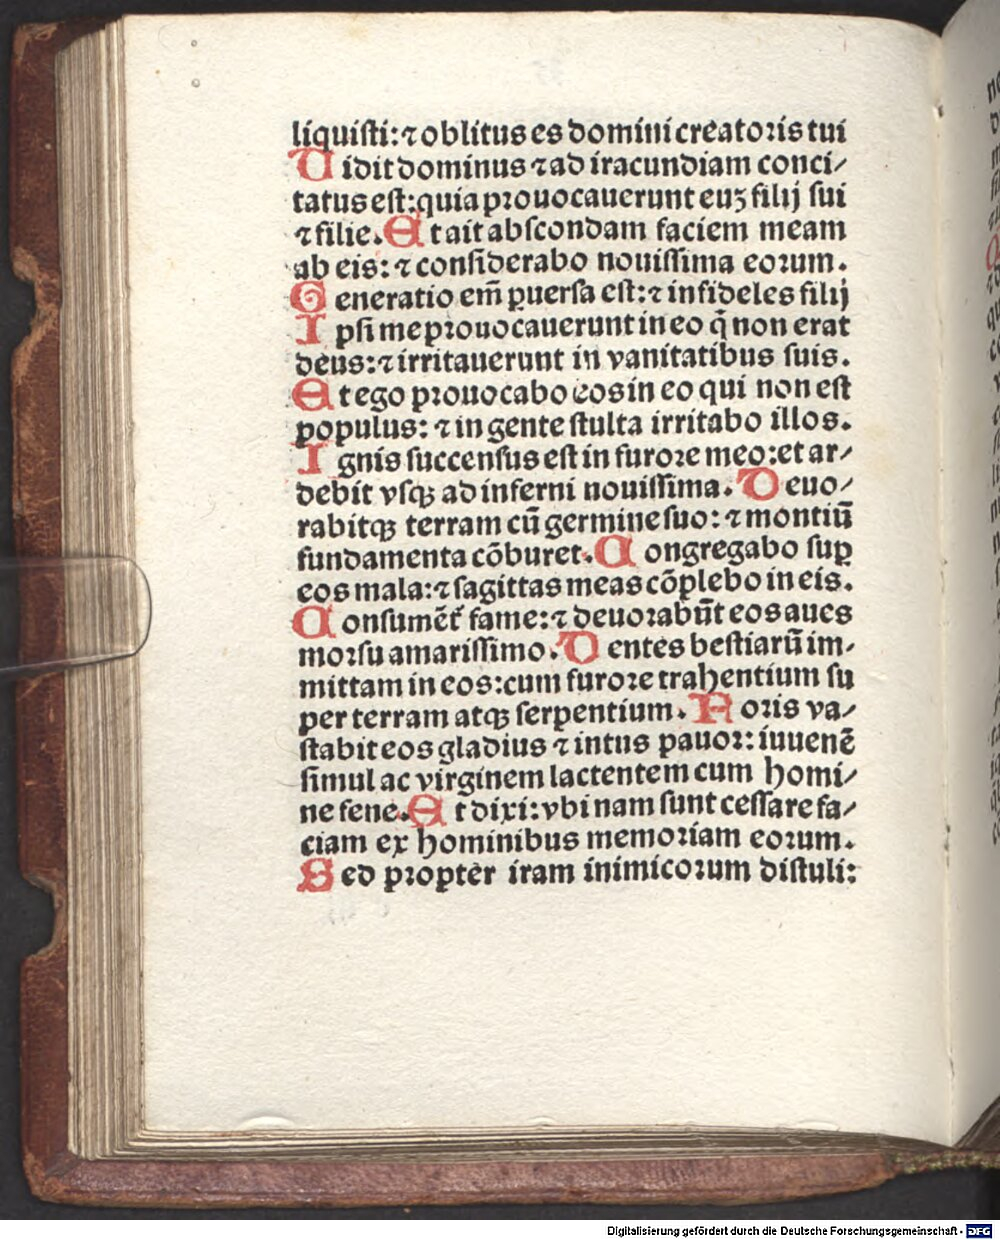 liquiſti: ⁊ oblitus es domini creatoris tui
Uidit dominus ⁊ ad iracundiam conci⸗
tatus est: quia prouocauerunt euꝫ filij ſui
⁊ filie. Et ait abſcondam faciem meam
ab eis: ⁊ conſiderabo nouiſſima eorum.
Generatio em̄ ꝑuerſa eſt: ⁊ infideles filij
Ipſi me prouocauerunt in eo q̄ non erat
deus: ⁊ irritauerunt in vanitatibus ſuis.
Et ego prouocabo eos in eo qui non eſt
populus: ⁊ in gente ſtulta irritabo illos.
Ignis ſuccenſus eſt in furore meo: et ar⸗
debit vſqꝫ ad inferni nouiſſima. Deuo⸗
rabitqꝫ terram cū germine ſuo: ⁊ montiū
fundamenta cōburet. Congregabo ſuꝑ
eos mala: ⁊ ſagittas meas cōplebo in eis.
Conſumēt᷑ fame: ⁊ deuorabūt eos aues
morſu amariſſimo. Dentes beſtiarū im⸗
mittam in eos: cum furore trahentium ſu
per terram atqꝫ ſerpentium. Foris va⸗
ſtabit eos gladius ⁊ intus pauor: iuuenē
ſimul ac virginem lactentem cum homi⸗
ne ſene. Et dixi: vbi nam ſunt ceſſare fa⸗
ciam ex hominibus memoriam eorum.
Sed propter iram inimicorum diſtuli:
Digitalisierung gefördert durch die Deutsche Forschungsgemeinschaft - DFG